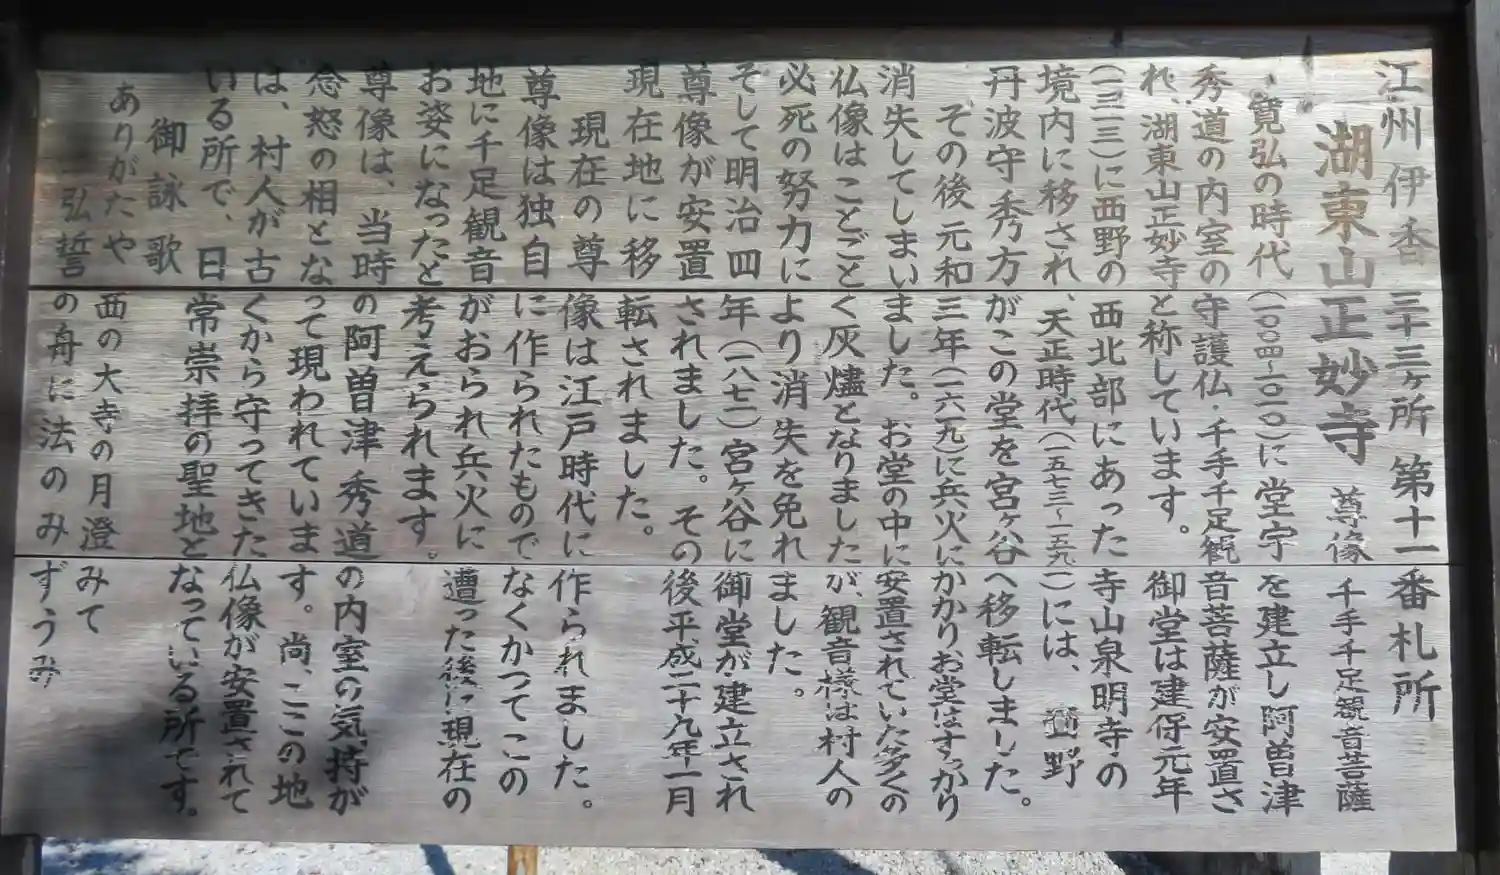 江州伊香三十三ヶ所 第十一番札所
湖東山正妙寺 尊像 千手千足観音菩薩
・寛弘の時代(一〇〇四~一〇一〇)に堂宇を建立し阿曽津
秀道の内室の守護仏・千手千足観音菩薩が安置さ
れ、湖東山正妙寺と称しています。御堂は建保元年
(一二一三)に西野の西北部にあった寺山泉明寺の
境内に移され、天正時代(一五七三~一五九一)には、西野
丹波守秀方がこの堂を宮ヶ谷へ移転しました。
その後元和三年(一六一九)に兵火にかかり、お堂はすっかり
消失してしまいました。お堂の中に安置されていた多くの
仏像はことごとく灰燼となりましたが、観音様は村人の
必死の努力により消失を免れました。
そして明治四年(一八七一)宮ヶ谷に御堂が建立され
尊像が安置されました。その後平成二十九年一月
現在地に移転されました。
現在の尊像は江戸時代に作られました。
尊像は独自に作られたものでなくかつてこの
地に千足観音がおられ兵火に遭った後に現在の
お姿になったと考えられます。
尊像は、当時の阿曽津秀道の内室の気持が
念怒の相となって現われています。尚、ここの地
は、村人が古くから守ってきた仏像が安置されて
いる所で、日常崇拝の聖地となっている所です。
御詠歌
ありがたや 西の大寺の月澄みて
弘誓の舟に法のみずうみ